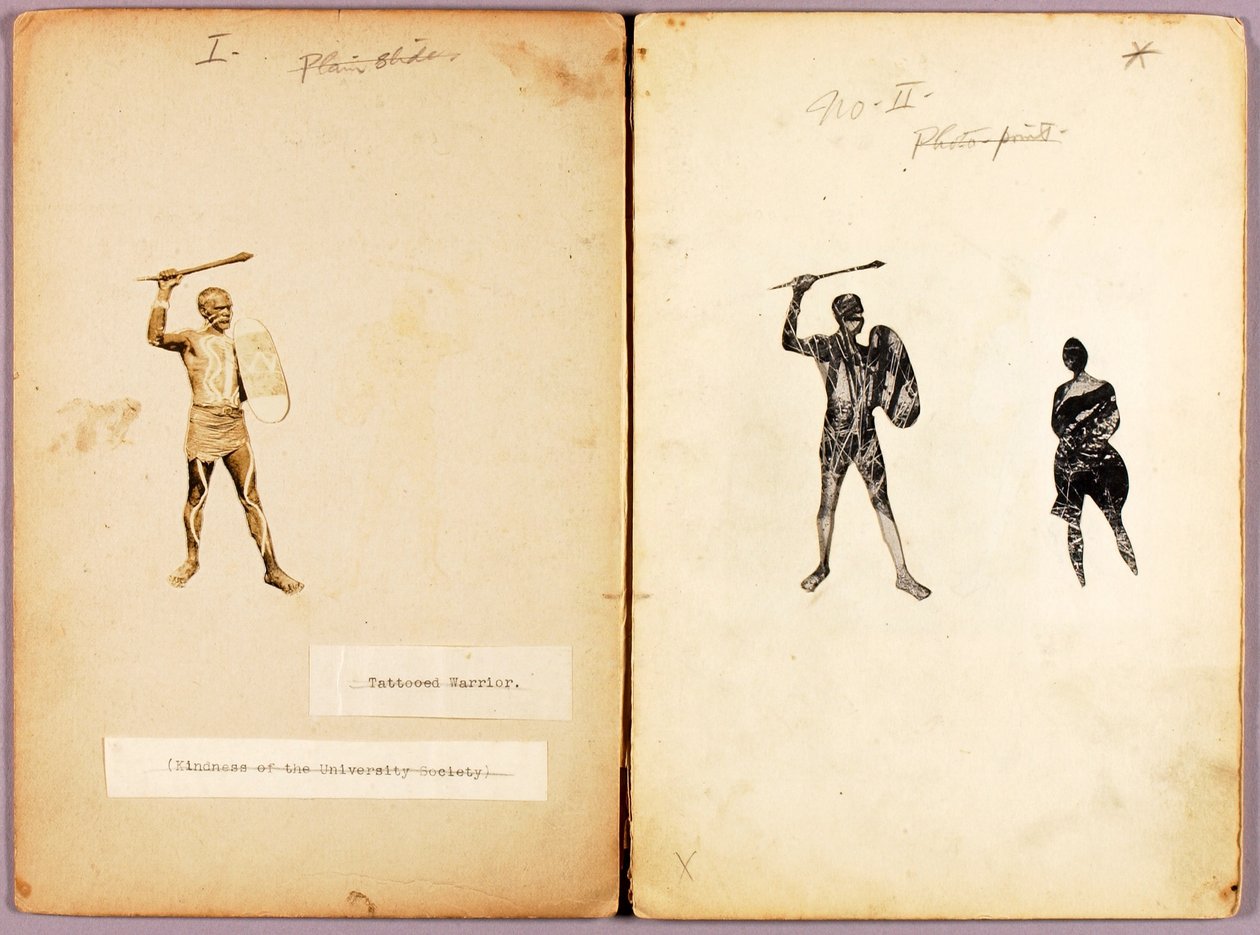 I-
Plain slide.
Tattooed Warrior.
(Kindness of the University Society)
X
No-II-
Photo-print-
X